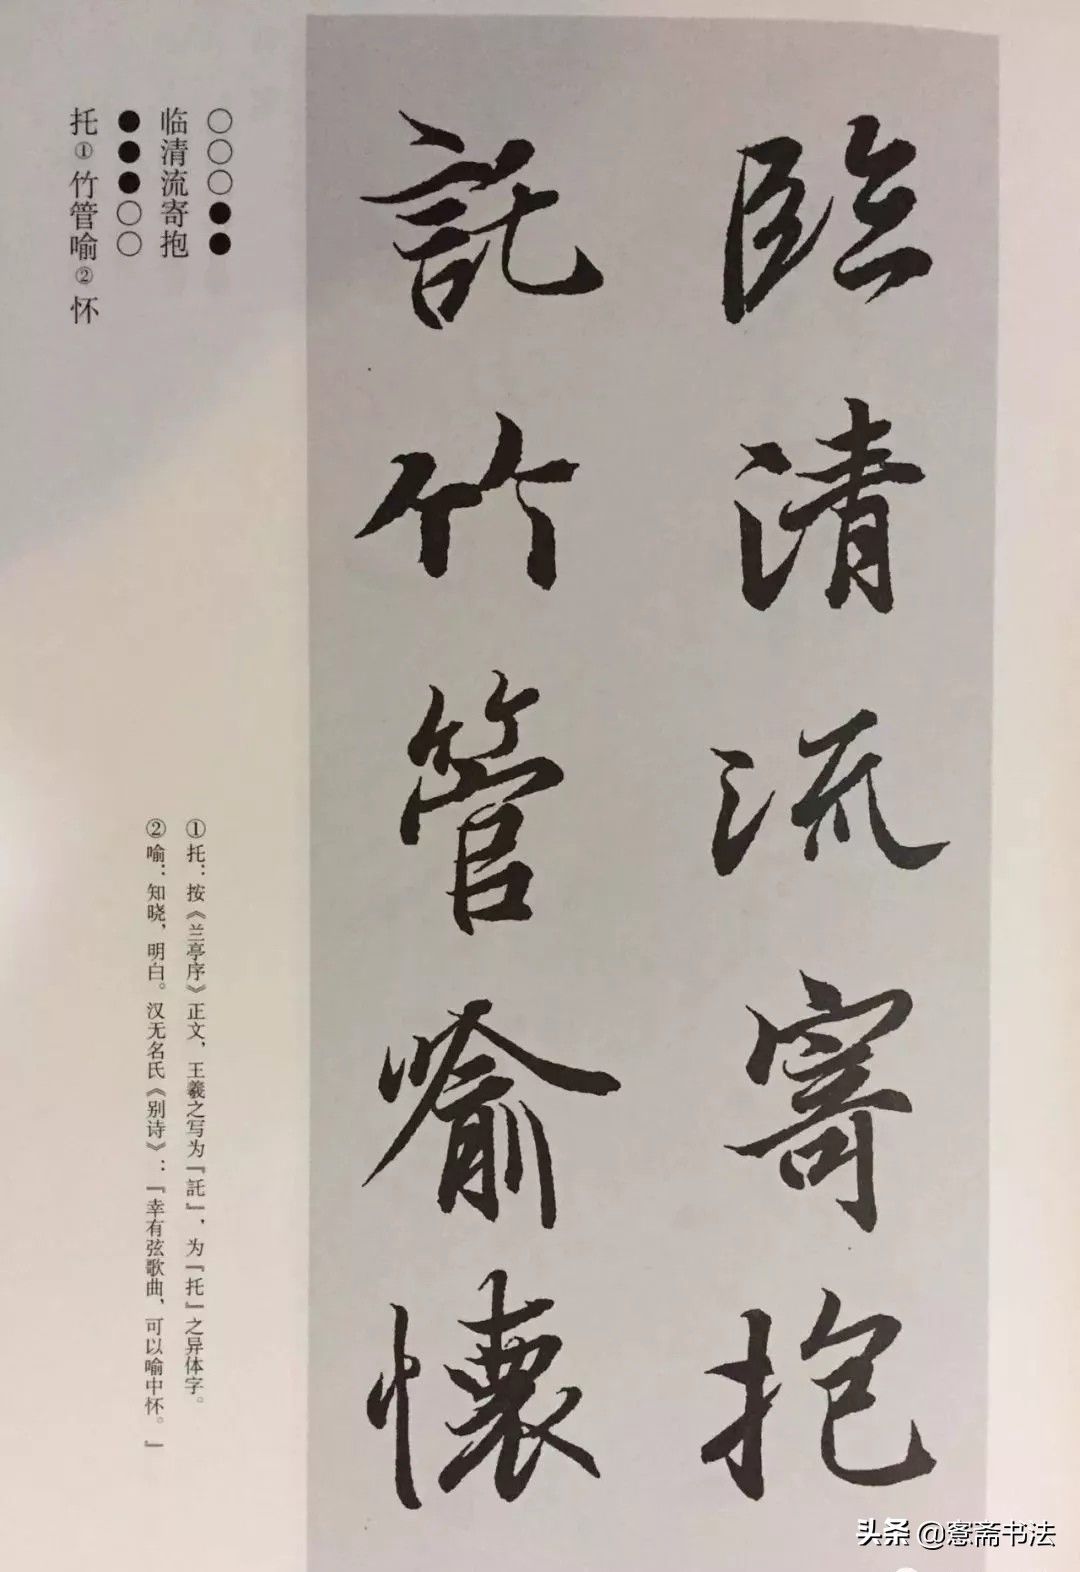 臨清流寄抱
託竹管喻懷
○○○●●
临清流寄抱
●●●○○
托①竹管喻②怀
①托：按《兰亭序》正文，王羲之写为「託」，为「托」之异体字。
②喻：知晓，明白。汉无名氏《别诗》：「幸有弦歌曲，可以喻中怀。」
头条 @窓斋书法